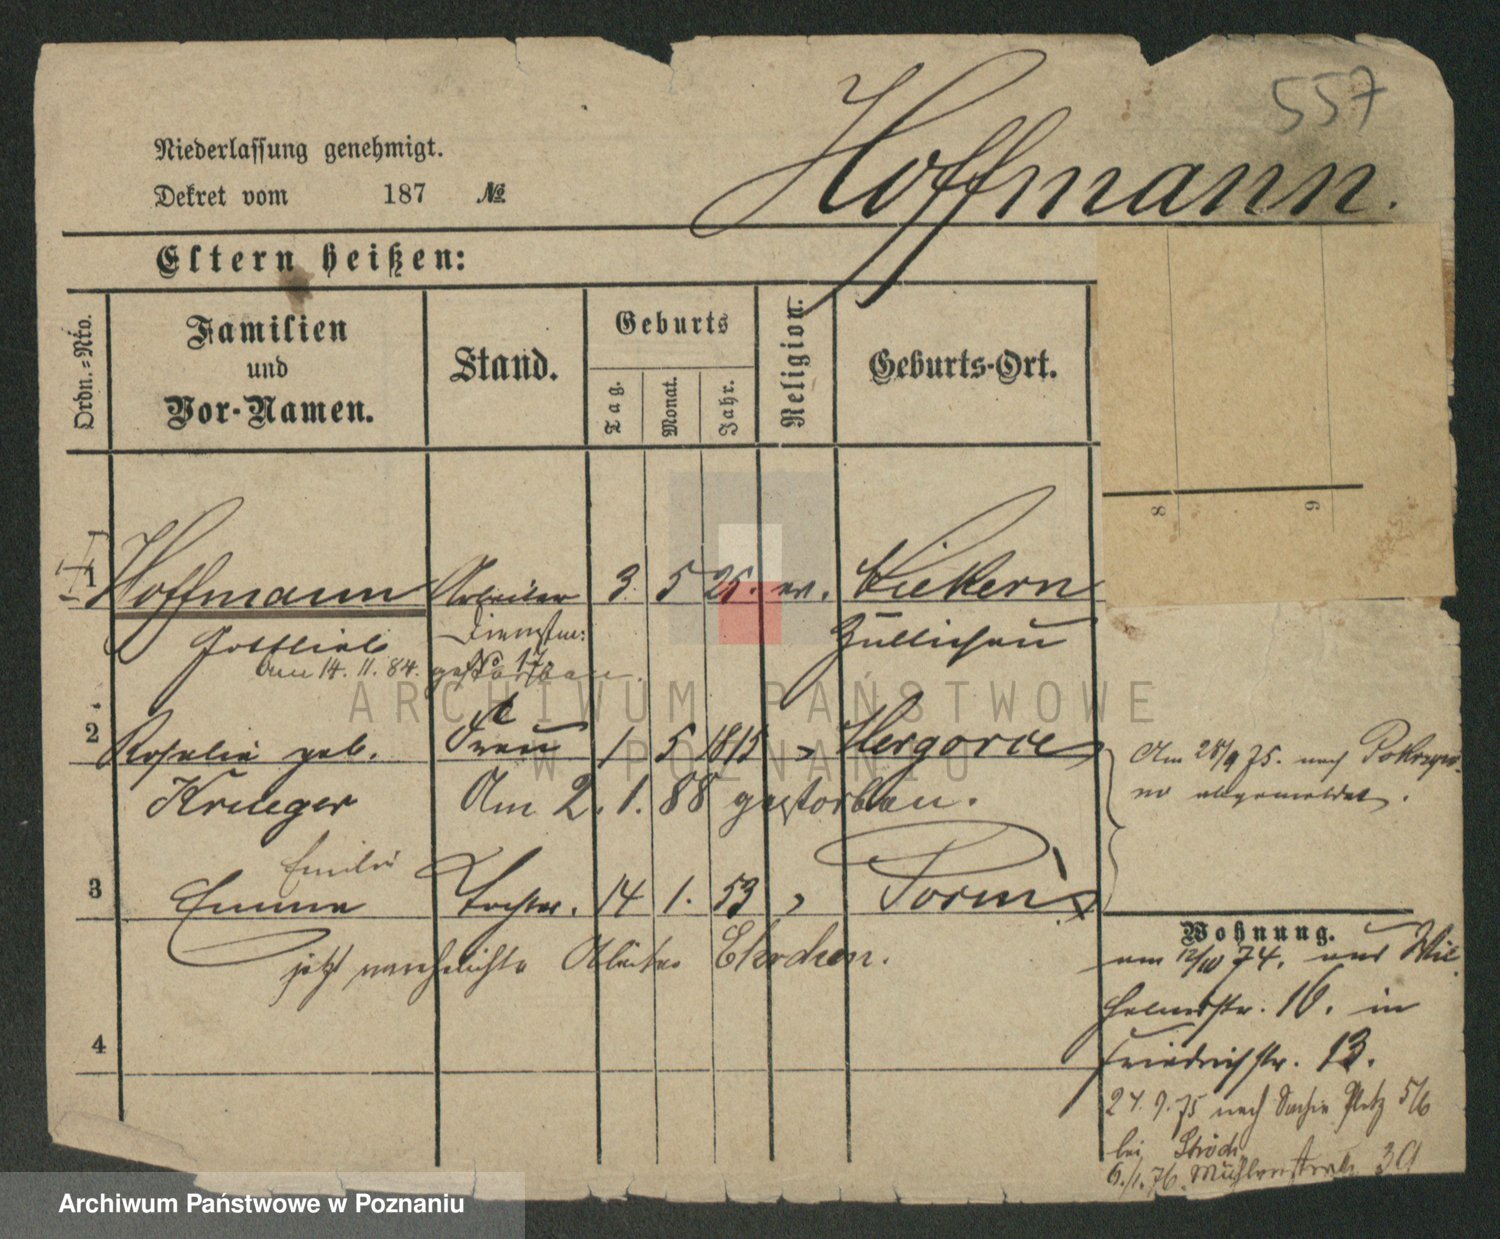 557
Hoffmann.
Niederlassung genehmigt.
Dekret vom 187 №
Eltern heißen:
Ordn.=Nro.
Familien
und
Vor-Namen.
Stand.
Geburts
Tag.
Monat.
Jahr.
Religion.
Geburts-Ort.
8 9
1 Hoffmann Arbeiter 3. 5 25. ev.
Gottlieb Dienstm: Züllichau
No 17.
am 14. 11. 84. gestorben.
2 Rosalie geb. Frau 1 5 1815 Hergorie
Krueger Am 2. 1. 88 gestorben.
Am 28/9 75. nach
abgemeldet.
Emilie
3 Emma Tochter. 14 1. 53
jetzt verehelichte Arbeiter
4
Wohnung.
am 12/10 74. aus Wil
helmstr. 16. in
Friedrichstr. 13.
24. 9. 75 nach Platz 5/6
bei
6./1. 76. Mühlenstraße 39
ARCHIWUM PAŃSTWOWE
W POZNANIU
Archiwum Państwowe w Poznaniu